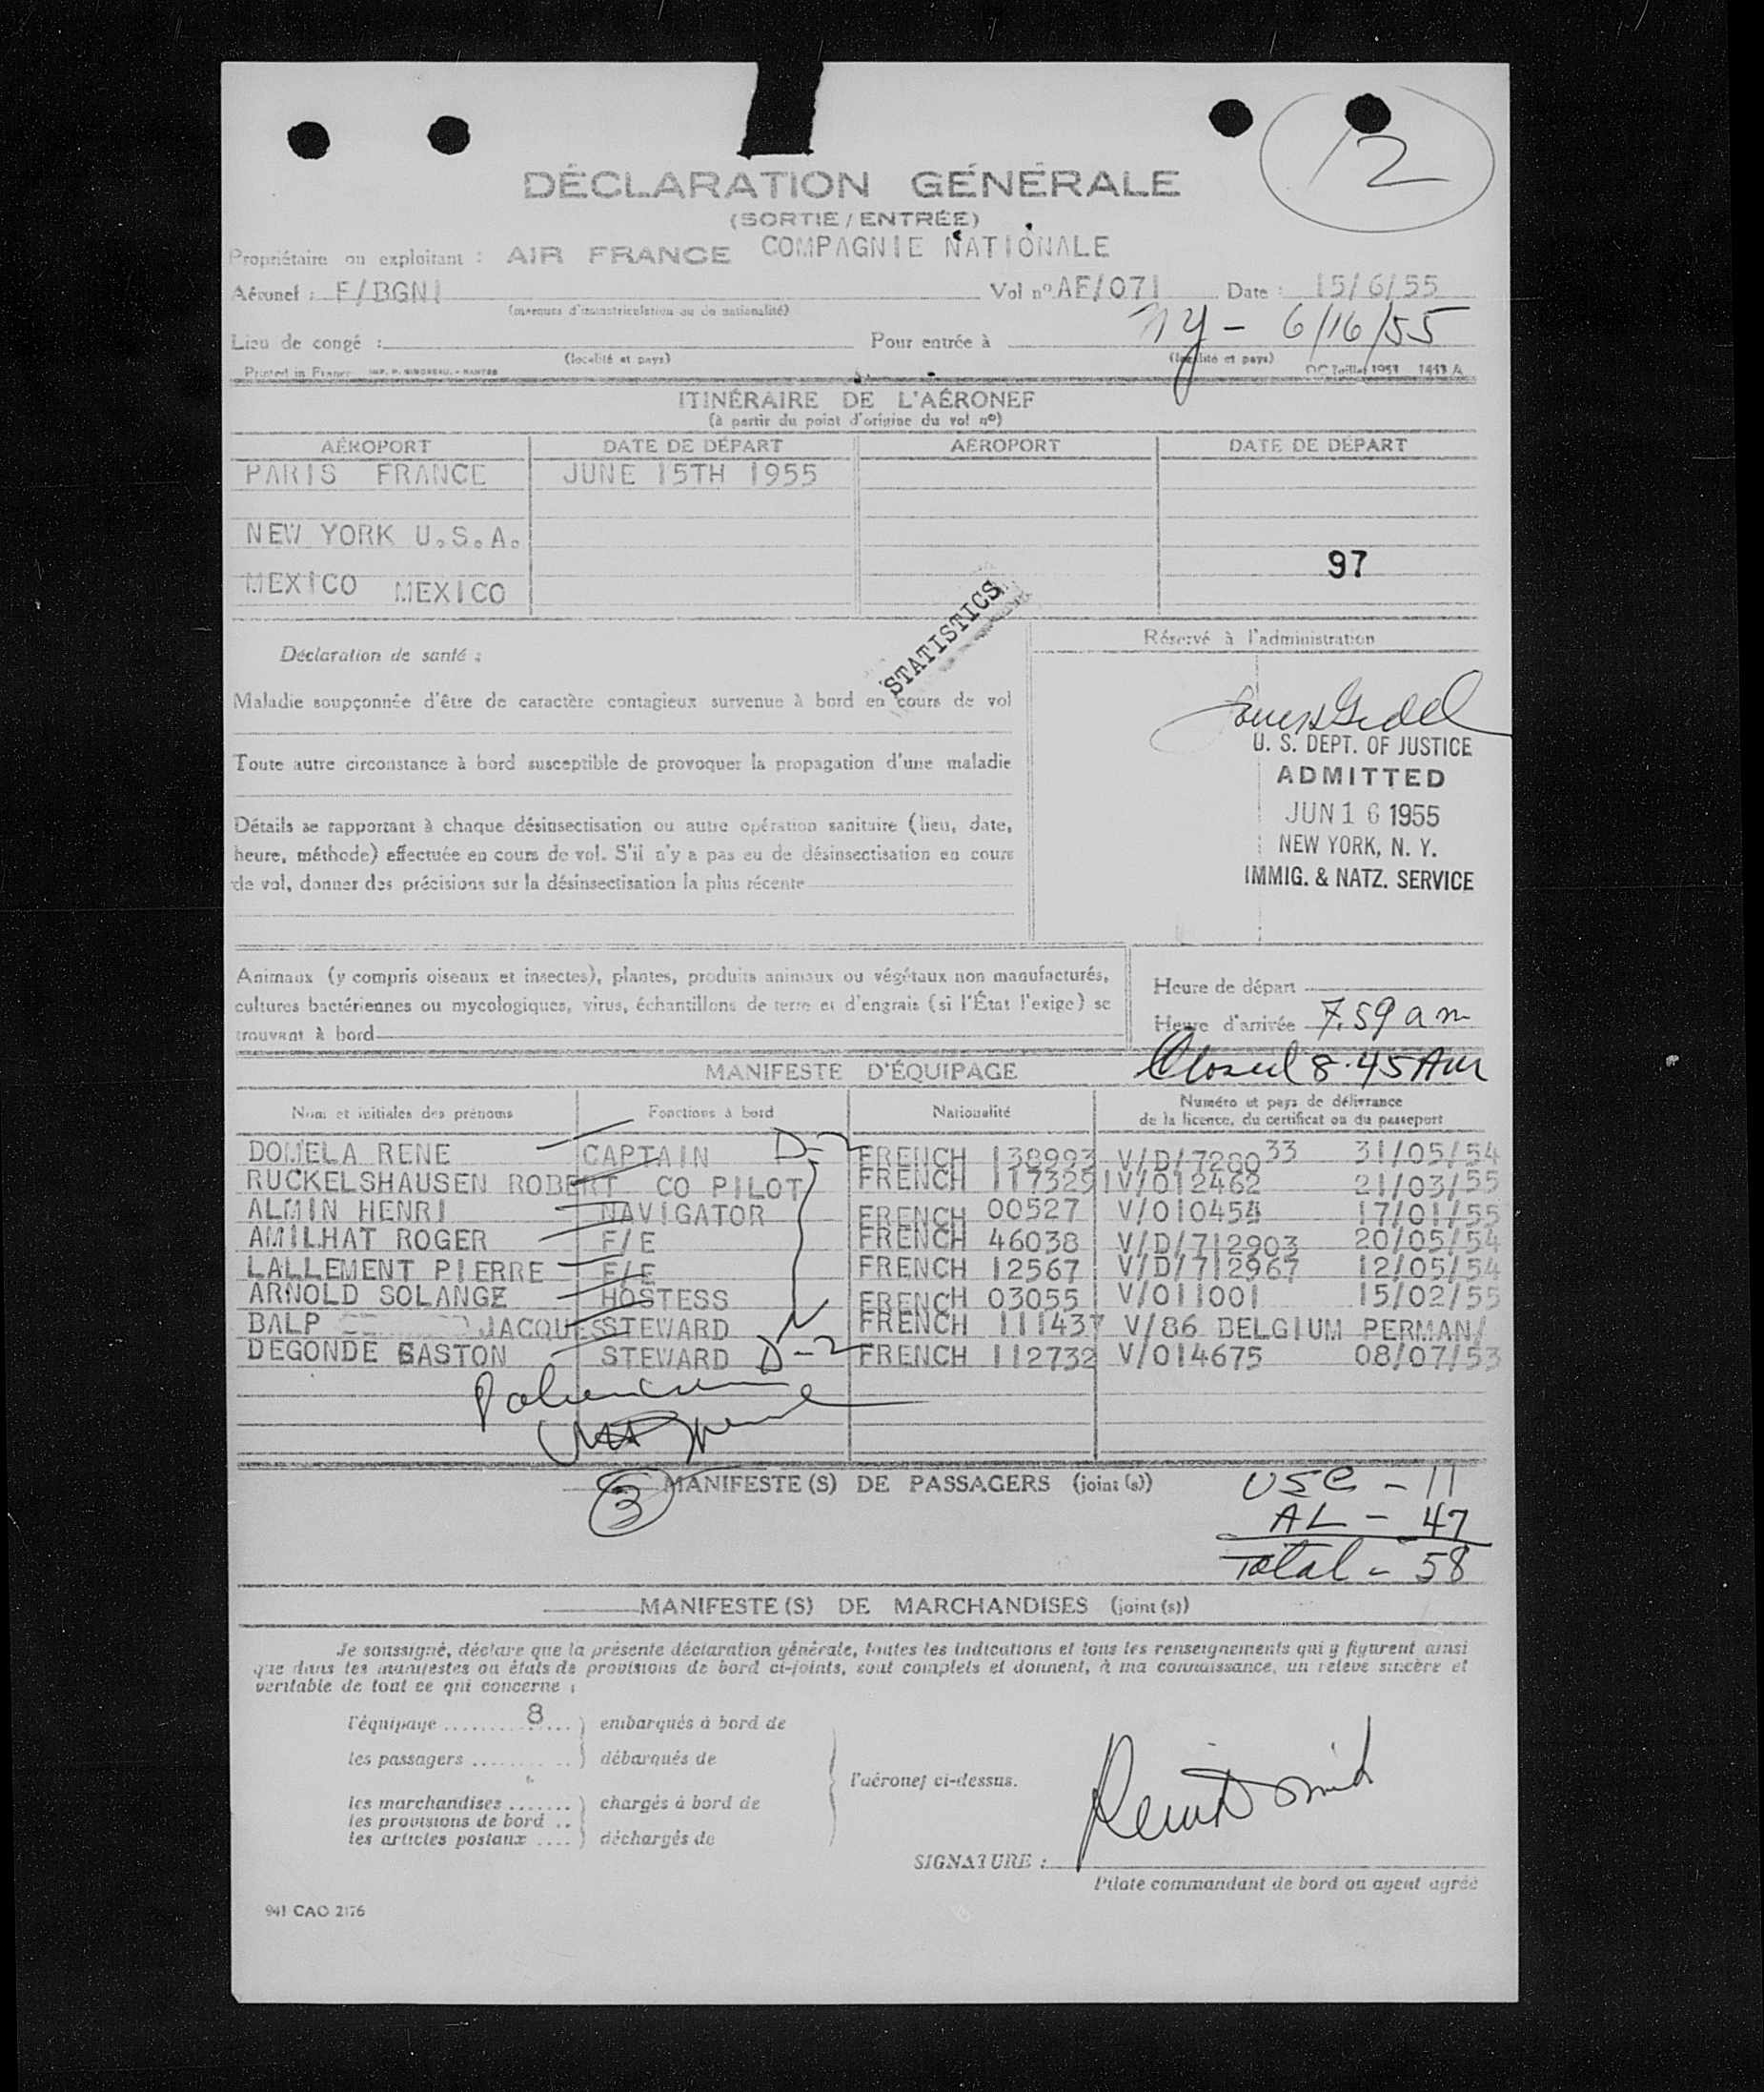 12
DÉCLARATION GÉNÉRALE
(SORTIE / ENTRÉE)
Propriétaire ou exploitant : AIR FRANCE COMPAGNIE NATIONALE
Aéronef : F/BGNI Vol nº AF/071 Date : 15/6/55
(marques d'immatriculation ou de nationalité)
NY - 6/16/55
Lieu de congé : Pour entrée à
(localité et pays) (localité et pays)
Printed in France
ITINÉRAIRE DE L'AÉRONEF
(à partir du point d'origine du vol nº)
AÉROPORT DATE DE DÉPART AÉROPORT DATE DE DÉPART
PARIS FRANCE JUNE 15TH 1955
NEW YORK U.S.A.
97
MEXICO MEXICO
STATISTICS
Réservé à l'administration
Déclaration de santé :
Maladie soupçonnée d'être de caractère contagieux survenue à bord en cours de vol
Toute autre circonstance à bord susceptible de provoquer la propagation d'une maladie
Détails se rapportant à chaque désinsectisation ou autre opération sanitaire (lieu, date,
heure, méthode) effectuée en cours de vol. S'il n'y a pas eu de désinsectisation en cours
de vol, donner des précisions sur la désinsectisation la plus récente
U. S. DEPT. OF JUSTICE
ADMITTED
JUN 16 1955
NEW YORK, N. Y.
IMMIG. & NATZ. SERVICE
Animaux (y compris oiseaux et insectes), plantes, produits animaux ou végétaux non manufacturés,
cultures bactériennes ou mycologiques, virus, échantillons de terre et d'engrais (si l'État l'exige) se
trouvant à bord
Heure de départ
Heure d'arrivée 7.59 am
Closed 8.45 AM
MANIFESTE D'ÉQUIPAGE
Nom et initiales des prénoms Fonctions à bord Nationalité Numéro et pays de délivrance
de la licence, du certificat ou du passeport
DOMELA RENE CAPTAIN D-2 FRENCH 138993 V/D/728033 31/05/54
RUCKELSHAUSEN ROBERT CO PILOT FRENCH 117329 V/012462 21/03/55
ALMIN HENRI NAVIGATOR FRENCH 00527 V/010454 17/01/55
AMILHAT ROGER F/E FRENCH 46038 V/D/712903 20/05/54
LALLEMENT PIERRE F/E FRENCH 12567 V/D/712967 12/05/54
ARNOLD SOLANGE HOSTESS FRENCH 03055 V/011001 15/02/55
BALP JACQUES STEWARD FRENCH 111437 V/86 BELGIUM PERMAN/
DEGONDE GASTON STEWARD D-2 FRENCH 112732 V/014675 08/07/53
3 MANIFESTE(S) DE PASSAGERS (joint(s))
USC - 11
AL - 47
Total - 58
MANIFESTE(S) DE MARCHANDISES (joint(s))
Je soussigné, déclare que la présente déclaration générale, toutes les indications et tous les renseignements qui y figurent ainsi
que dans les manifestes ou états de provisions de bord ci-joints, sont complets et donnent, à ma connaissance, un relevé sincère et
veritable de tout ce qui concerne :
l'équipage 8 embarqués à bord de
les passagers débarqués de
l'aéronef ci-dessus.
les marchandises chargés à bord de
les provisions de bord
les articles postaux déchargés de
SIGNATURE :
Pilote commandant de bord ou agent agréé
941 CAO 2176